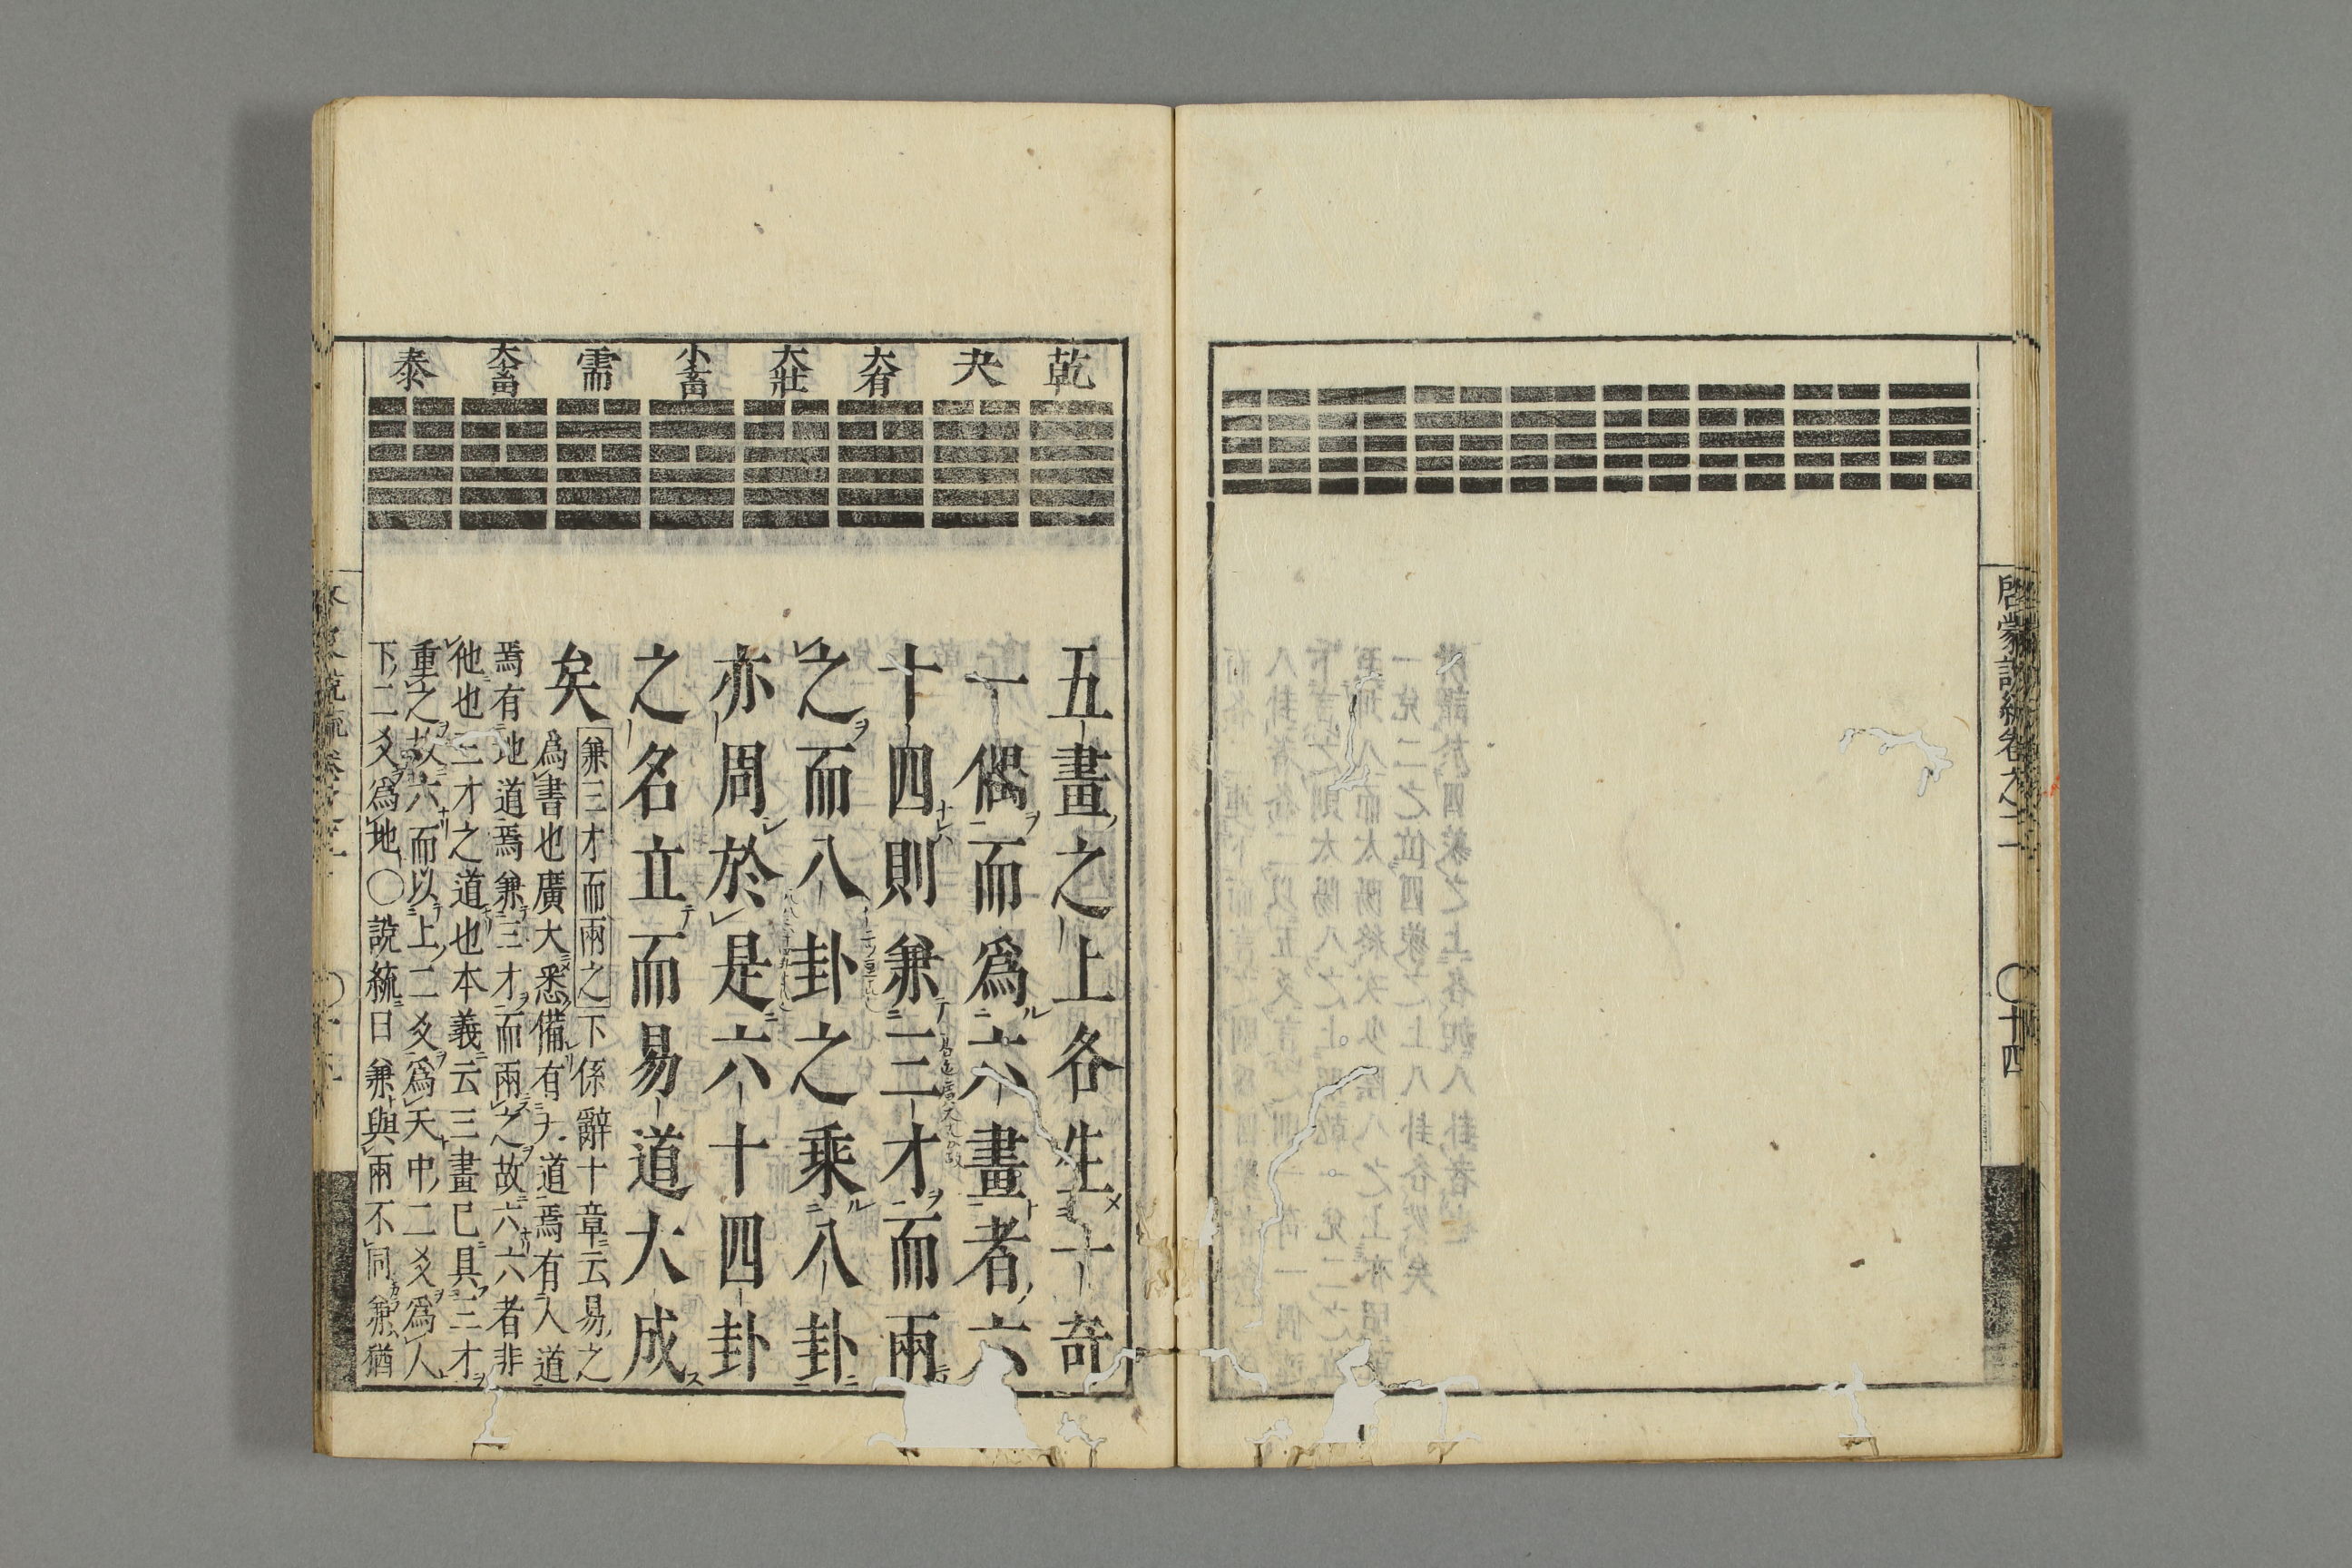 啓蒙說統卷之二
〇十四
乾
夬
大有
大壯
小畜
需
大畜
泰
五畫之上各生一奇
一偶而爲六畫者六
十四則兼三才而兩
之而八卦之乘八卦
亦周於是六十四卦
之名立而易道大成
矣
兼三才而兩之下係辭十章云易之
爲書也廣大悉備有天道焉有人道
焉有地道焉兼三才而兩之故六六者非
他也三才之道也本義云三畫已具三才
重之故六而以上二爻爲天中二爻爲人
下二爻爲地〇說統曰兼與兩不同兼猶